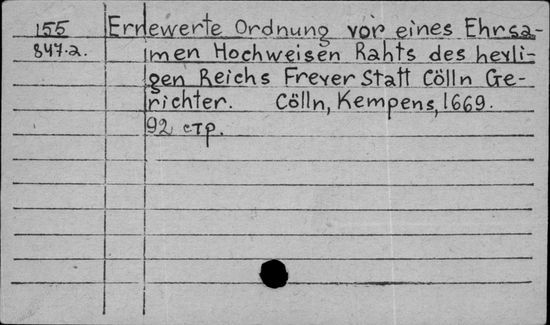 155 Ernewerte Ordnung vor eines Ehrsa-
847.2. men Hochweisen Rahts des heyli-
gen Reichs Freyer Statt Cölln Ge-
richter. Cölln, Kempens, 1669.
92 стр.